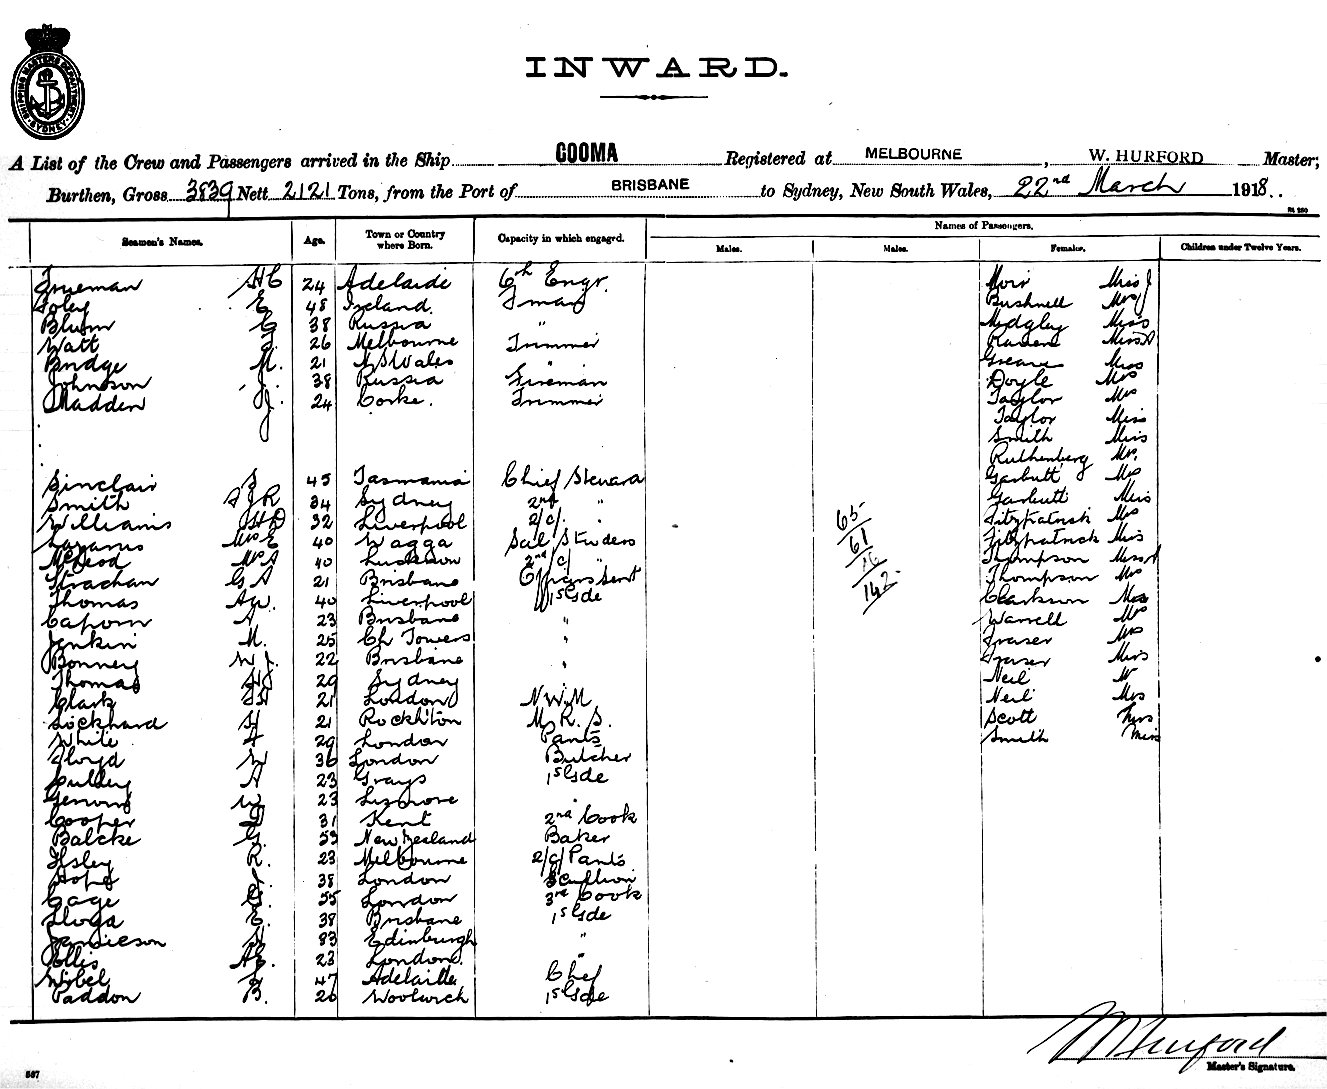 SHIPPING MASTERS DEPARTMENT SYDNEY
INWARD.
A List of the Crew and Passengers arrived in the Ship COOMA Registered at MELBOURNE, W. HURFORD Master;
Burthen, Gross 3839 Nett 2121 Tons, from the Port of BRISBANE to Sydney, New South Wales, 22nd March 1918.
Seamen's Names. Age. Town or Country where Born. Capacity in which engaged. Names of Passengers.
Males. Males. Females. Children under Twelve Years.
Freeman H C 24 Adelaide 6th Engr. Moir Miss J
Foley E 48 Ireland Fman Bushnell Mrs J
Blum C 38 Russia " Midgley Miss
Watt J. 26 Melbourne Trimmer Miss
Bridge M. 21 N S Wales " Greave Miss
Johnson J. 38 Russia Fireman Doyle Mrs
Madden J. 24 Corke. Trimmer Taylor Mrs
Taylor Miss
Smith Miss
Ruthenberg Mr.
Sinclair J 45 Tasmania Chief Steward Garbutt Mrs
Smith A J R 34 Sydney 2nd " Garbutt Miss
Williams 32 Liverpool 2/c/. " Fitzpatrick Mrs 65
Mrs E 40 Wagga Sal Studers Fitzpatrick Miss 61
McLeod Mrs A 40 2nd/c/ " Thompson Miss A 16
Strachan G A 21 Brisbane Offcrs Sert Thompson Mrs 142
Thomas A W. 40 Liverpool 1st Sde Clarkson Mrs
Caporn A 23 Brisbane " Warrell Mrs
Jenkin M. 25 Ch Towers " Fraser Mrs
Bonney W J. 22 Brisbane " Fraser Miss
Thomas H J 29 Sydney Neil W
Clark 21 London N.W.M Neil Mrs
Lockhard H 21 Rockhton M. R. S. Scott Mrs
White F 29 London Pants Smith Miss
Floyd W 36 London Butcher
Pulley A 23 Grays 1st Sde
W 23 Lismore "
Cooper 31 Kent 2nd Cook
Balcke G. 53 New Zealand Baker
Ilsley R. 23 Melbourne 2/c/ Pants
Hope J. 38 London Scullion
Gage G. 55 London 3rd Cook
E. 38 Brisbane 1st Sde
Jamieson H 83 Edinburgh "
Ollis A E. 23 London. "
Wibel F 47 Adelaide Chef
Paddon B. 26 Woolwich 1st Sde
W Hurford
Master's Signature.